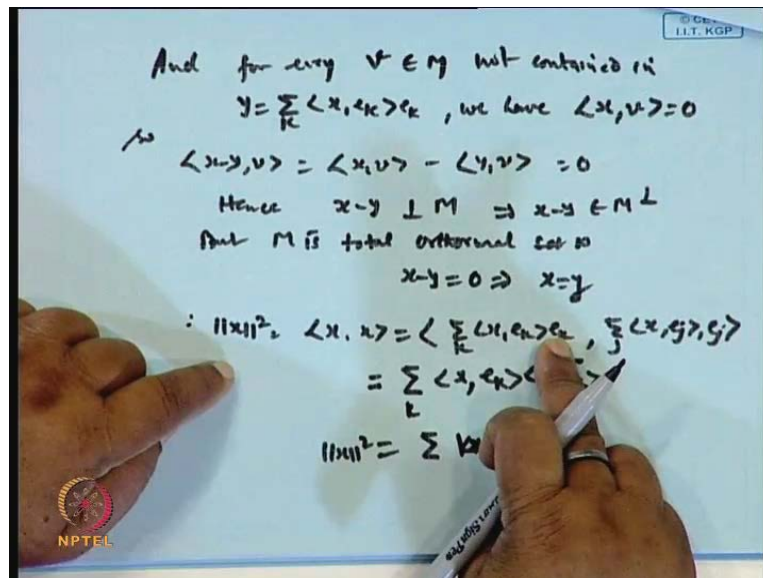 © CET
I.I.T. KGP
And for every v ∈ M not contained in
y = Σ_k <x, e_k> e_k , we have <x, v> = 0
so
<x-y, v> = <x, v> - <y, v> = 0
Hence x-y ⊥ M ⇒ x-y ∈ M⊥
But M is total orthormal set so
x-y = 0 ⇒ x = y
∴ ||x||², <x, x> = < Σ_k <x, e_k> e_k , Σ_j <x, e_j>, e_j >
= Σ_k <x, e_k> <
||x||² = Σ
NPTEL